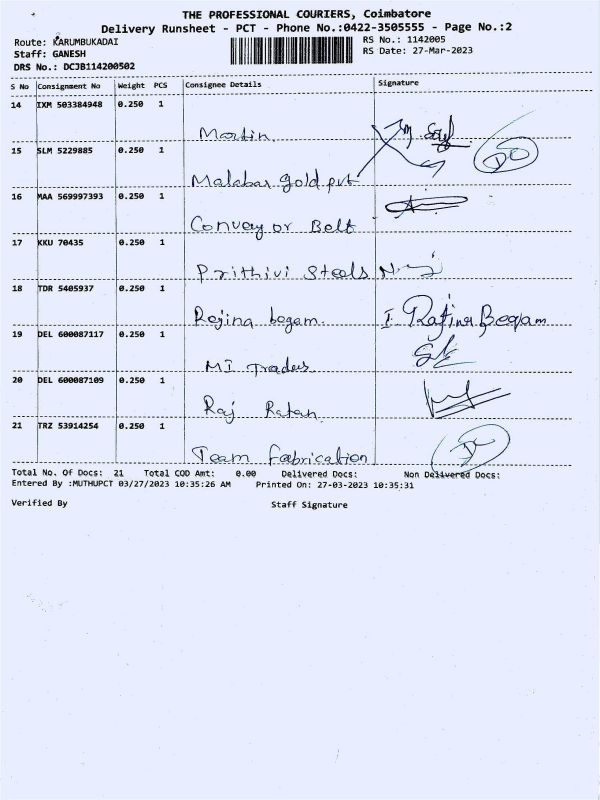 THE PROFESSIONAL COURIERS, Coimbatore
Delivery Runsheet - PCT - Phone No.:0422-3505555 - Page No.:2
Route: KARUMBUKADAI
RS No.: 1142005
Staff: GANESH
RS Date: 27-Mar-2023
DRS No.: DCJB114200502
S No Consignment No Weight PCS Consignee Details Signature
14 IXM 503384948 0.250 1
Martin
15 SLM 5229885 0.250 1
Malabar gold pvt
16 MAA 569997393 0.250 1
Conveyor Belt
17 KKU 70435 0.250 1
Prithivi Steels
18 TDR 5405937 0.250 1
Rejina begam. I. Rajina Begam
19 DEL 600087117 0.250 1
MI Traders
20 DEL 600087109 0.250 1
Raj Ratan
21 TRZ 53914254 0.250 1
Team fabrication
Total No. Of Docs: 21 Total COD Amt: 0.00 Delivered Docs: Non Delivered Docs:
Entered By :MUTHUPCT 03/27/2023 10:35:26 AM Printed On: 27-03-2023 10:35:31
Verified By Staff Signature